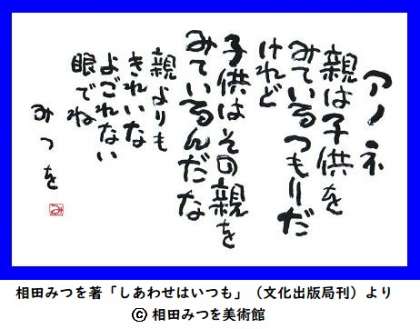 アノネ
親は子供を
みているつもりだ
けれど
子供はその親を
みているんだな
親よりも
きれいな
よごれない
眼でね
みつを
み
相田みつを著「しあわせはいつも」（文化出版局刊）より
© 相田みつを美術館